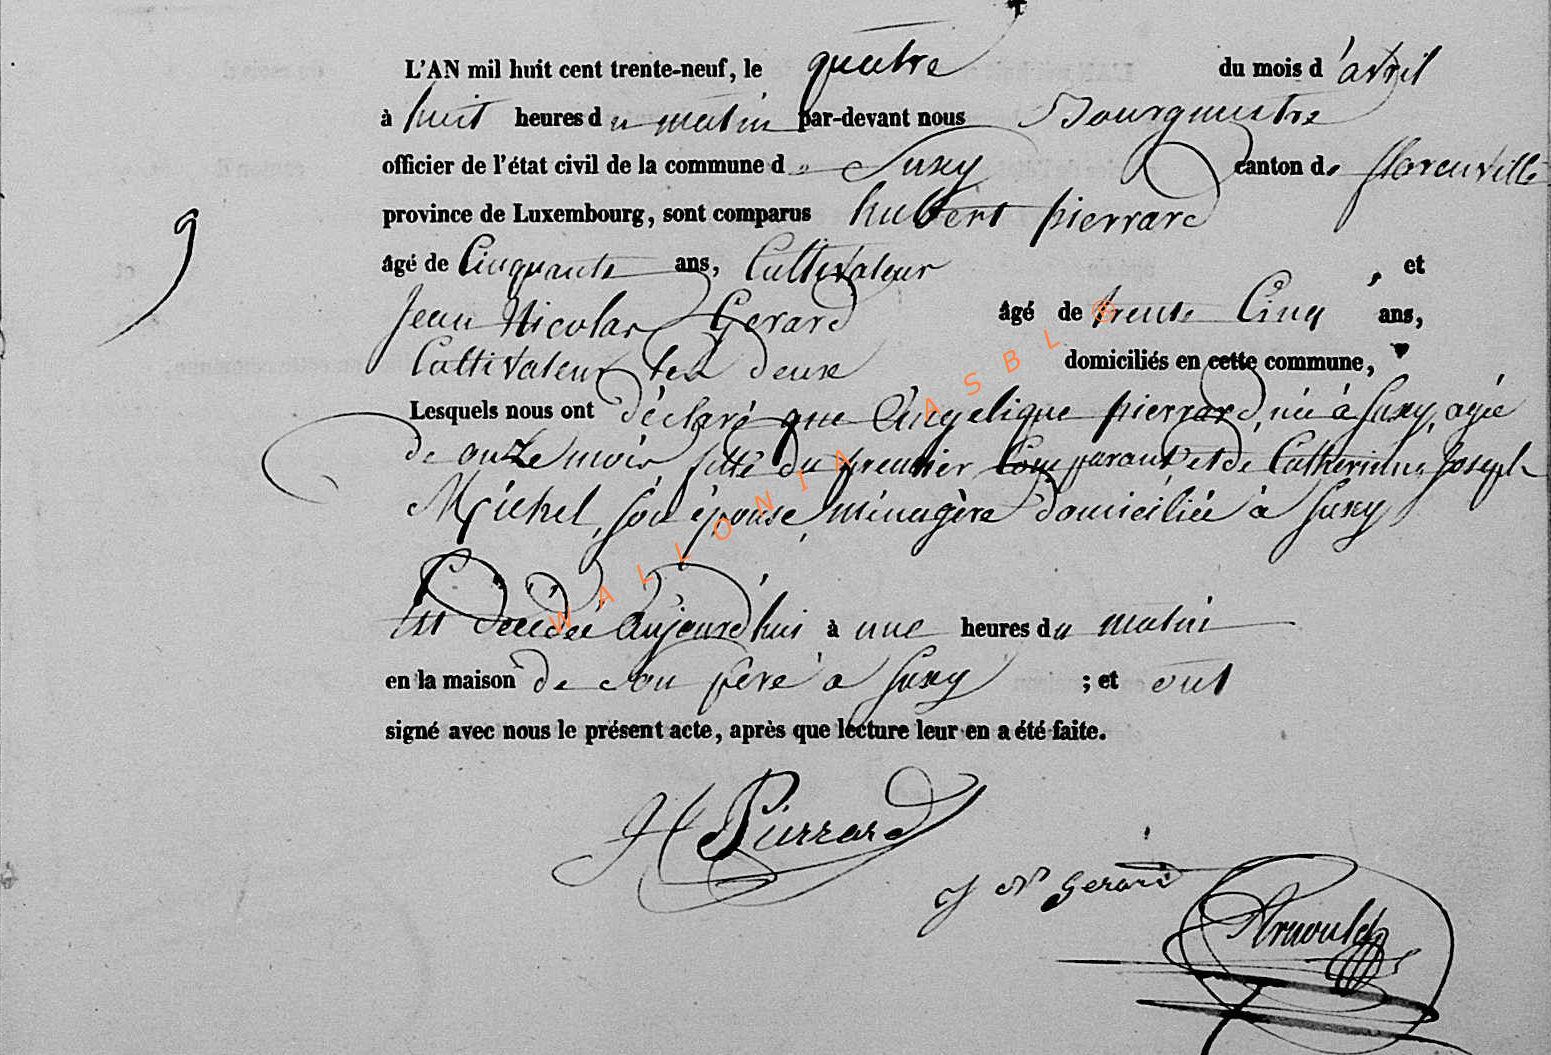 L'AN mil huit cent trente-neuf, le quatre du mois d'avril
à huit heures du matin par-devant nous Bourgmestre
officier de l'état civil de la commune de Suxy canton de florenville
province de Luxembourg, sont comparus hubert pierrard
âgé de Cinquante ans, Cultivateur, et
Jean Nicolas Gerard âgé de trente Cinq ans,
Cultivateur tous deux domiciliés en cette commune,
Lesquels nous ont déclaré que Angelique pierrard, née à Suxy, agée
de onze mois fille du premier Comparant et de Catherine Joseph
Michel, son épouse, ménagère domiciliée à Suxy
Est décédée aujourd'hui à une heures du matin
en la maison de son père à Suxy ; et ont
signé avec nous le présent acte, après que lecture leur en a été faite.
H Pierrard
J N Gerard
Arnould
9
WALLONIA ASBL ©